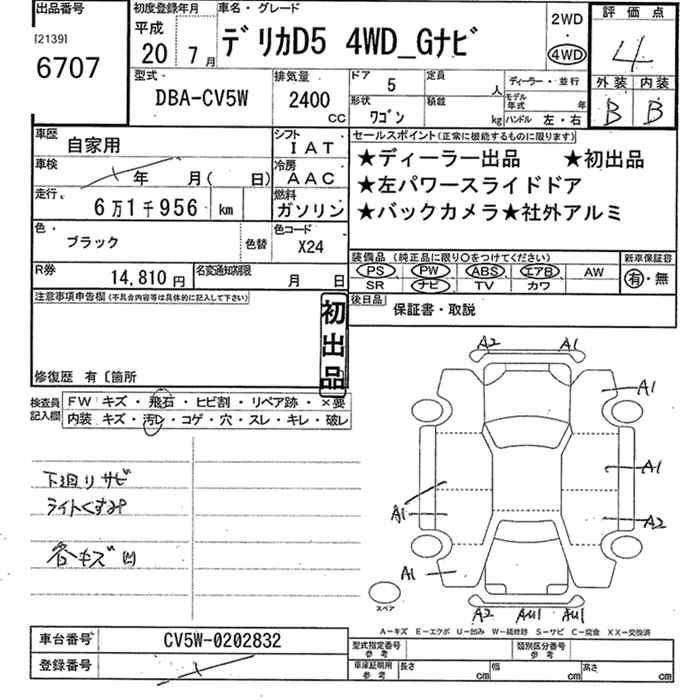 出品番号
[2139]
6707
初度登録年月
平成
20 7 月
車名・グレード
デリカD5 4WD_Gナビ
2WD
・
4WD
評価点
4
外装 内装
B B
型式
DBA-CV5W
排気量
2400
CC
ドア 5
定員 人
ディーラー・並行
形状 ワゴン
積載 kg
モデル年式 年
ハンドル 左・右
車歴 自家用
シフト IAT
車検 年 月( 日)
冷房 AAC
走行 6万1千956 km
燃料 ガソリン
色 ブラック
色替
色コード X24
R券 14,810 円
名変通知期限 月 日
セールスポイント(正常に機能するものに限ります)
★ディーラー出品 ★初出品
★左パワースライドドア
★バックカメラ★社外アルミ
装備品(純正品に限り○をつけてください)
PS PW ABS エアB AW
SR ナビ TV カワ
新車保証書
有・無
後日品 保証書・取説
注意事項申告欄(不具合内容等は具体的に記入して下さい)
初出品
修復歴 有〔箇所
検査員記入欄
FW キズ・飛石・ヒビ割・リペア跡・×要
内装 キズ・汚レ・コゲ・穴・スレ・キレ・破レ
下廻りサビ
ライトくすみ
各キズ凹
A2 A1
A1
A1
A1
A2
A1
スペア
A2 AU1 AU1
A-キズ E-エクボ U-凹み W-補修跡 S-サビ C-腐食 XX-交換済
車台番号 CV5W-0202832
登録番号
型式指定番号 参考
類別区分番号 参考
車庫証明用 参考
長さ cm
幅 cm
高さ cm